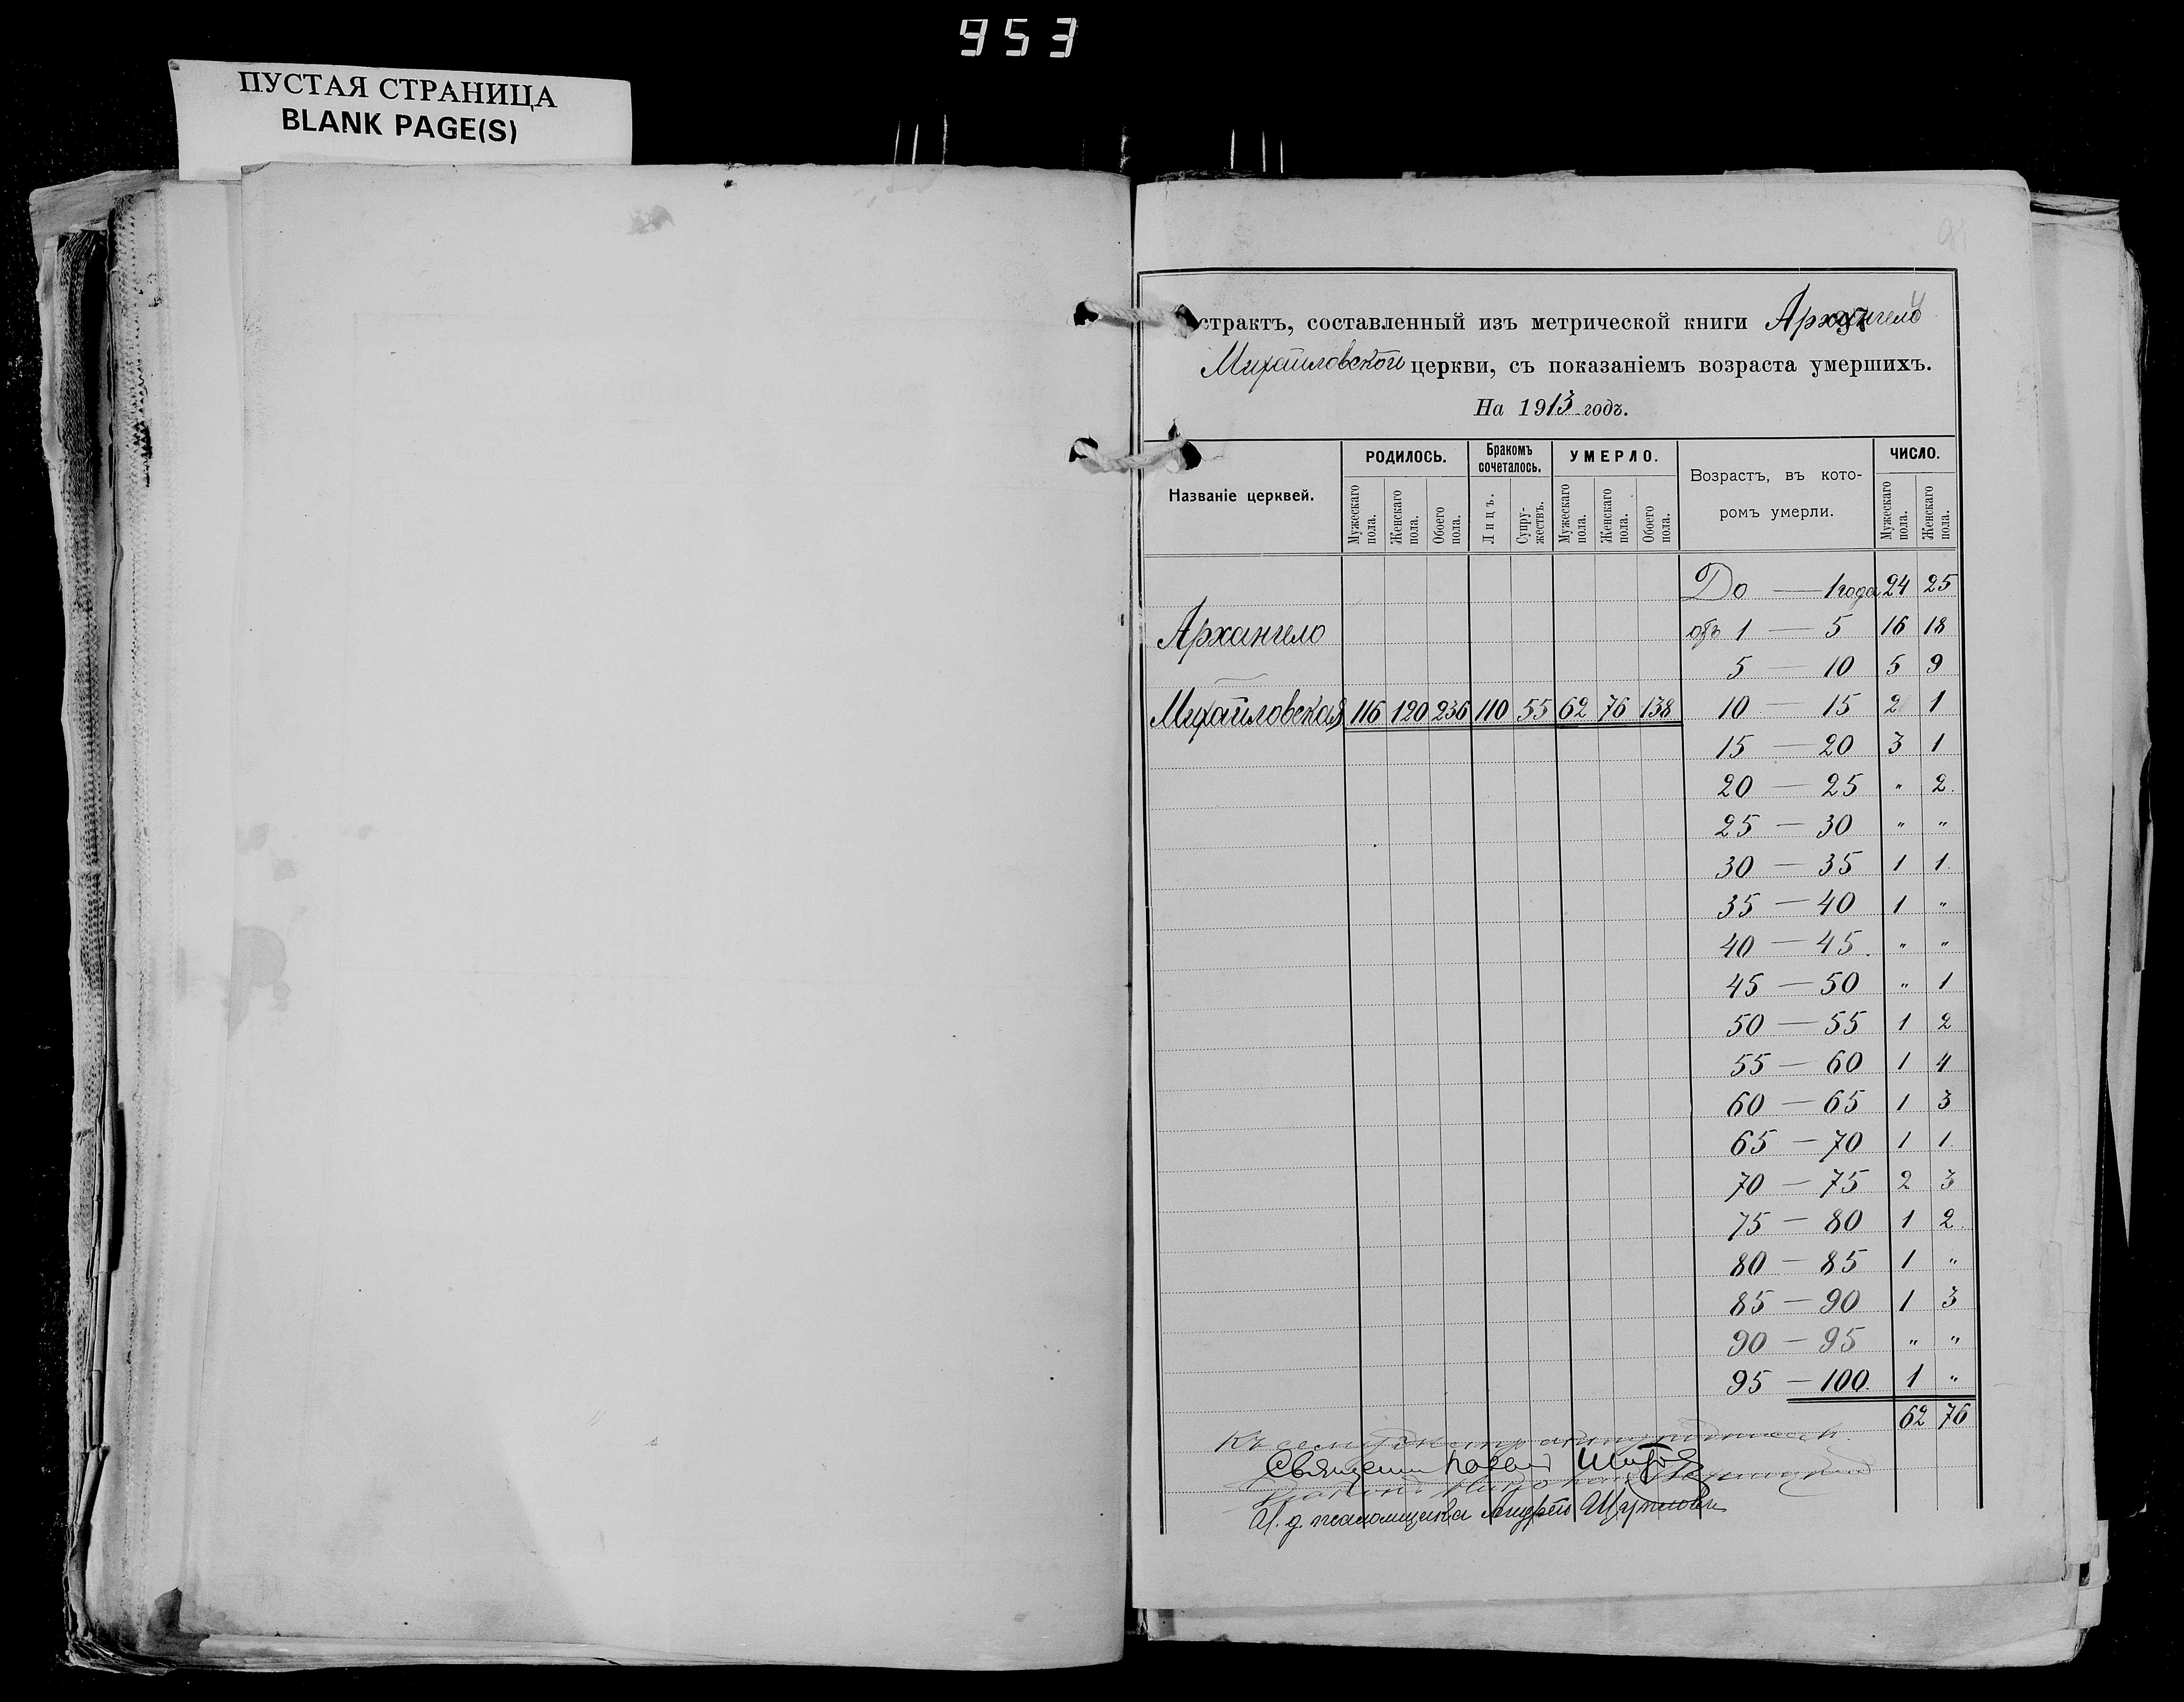 953
ПУСТАЯ СТРАНИЦА
BLANK PAGE(S)
страктъ, составленный изъ метрической книги Архангело
Михайловской церкви, съ показаніемъ возраста умершихъ.
На 1913 годъ.
Названіе церквей.
РОДИЛОСЬ.
Мужескаго пола.
Женскаго пола.
Обоего пола.
Бракомъ сочеталось.
Лицъ.
Супружествъ.
УМЕРЛО.
Мужескаго пола.
Женскаго пола.
Обоего пола.
Возрастъ, въ кото-
ромъ умерли.
ЧИСЛО.
Мужескаго пола.
Женскаго пола.
До — 1 года 24 25
Архангело отъ 1 — 5 16 18
5 — 10 5 9
Михайловская 116 120 236 110 55 62 76 138 10 — 15 2 1
15 — 20 3 1
20 — 25 " 2.
25 — 30 " "
30 — 35 1 1.
35 — 40 1 "
40 — 45. " "
45 — 50 " 1
50 — 55 1 2
55 — 60 1 4
60 — 65 1 3
65 — 70 1 1.
70 — 75 2 3
75 — 80 1 2.
80 — 85 1 "
85 — 90 1 3
90 — 95 " "
95 — 100. 1 "
62 76
Къ сему
Священникъ
И. д. псаломщика Андрей